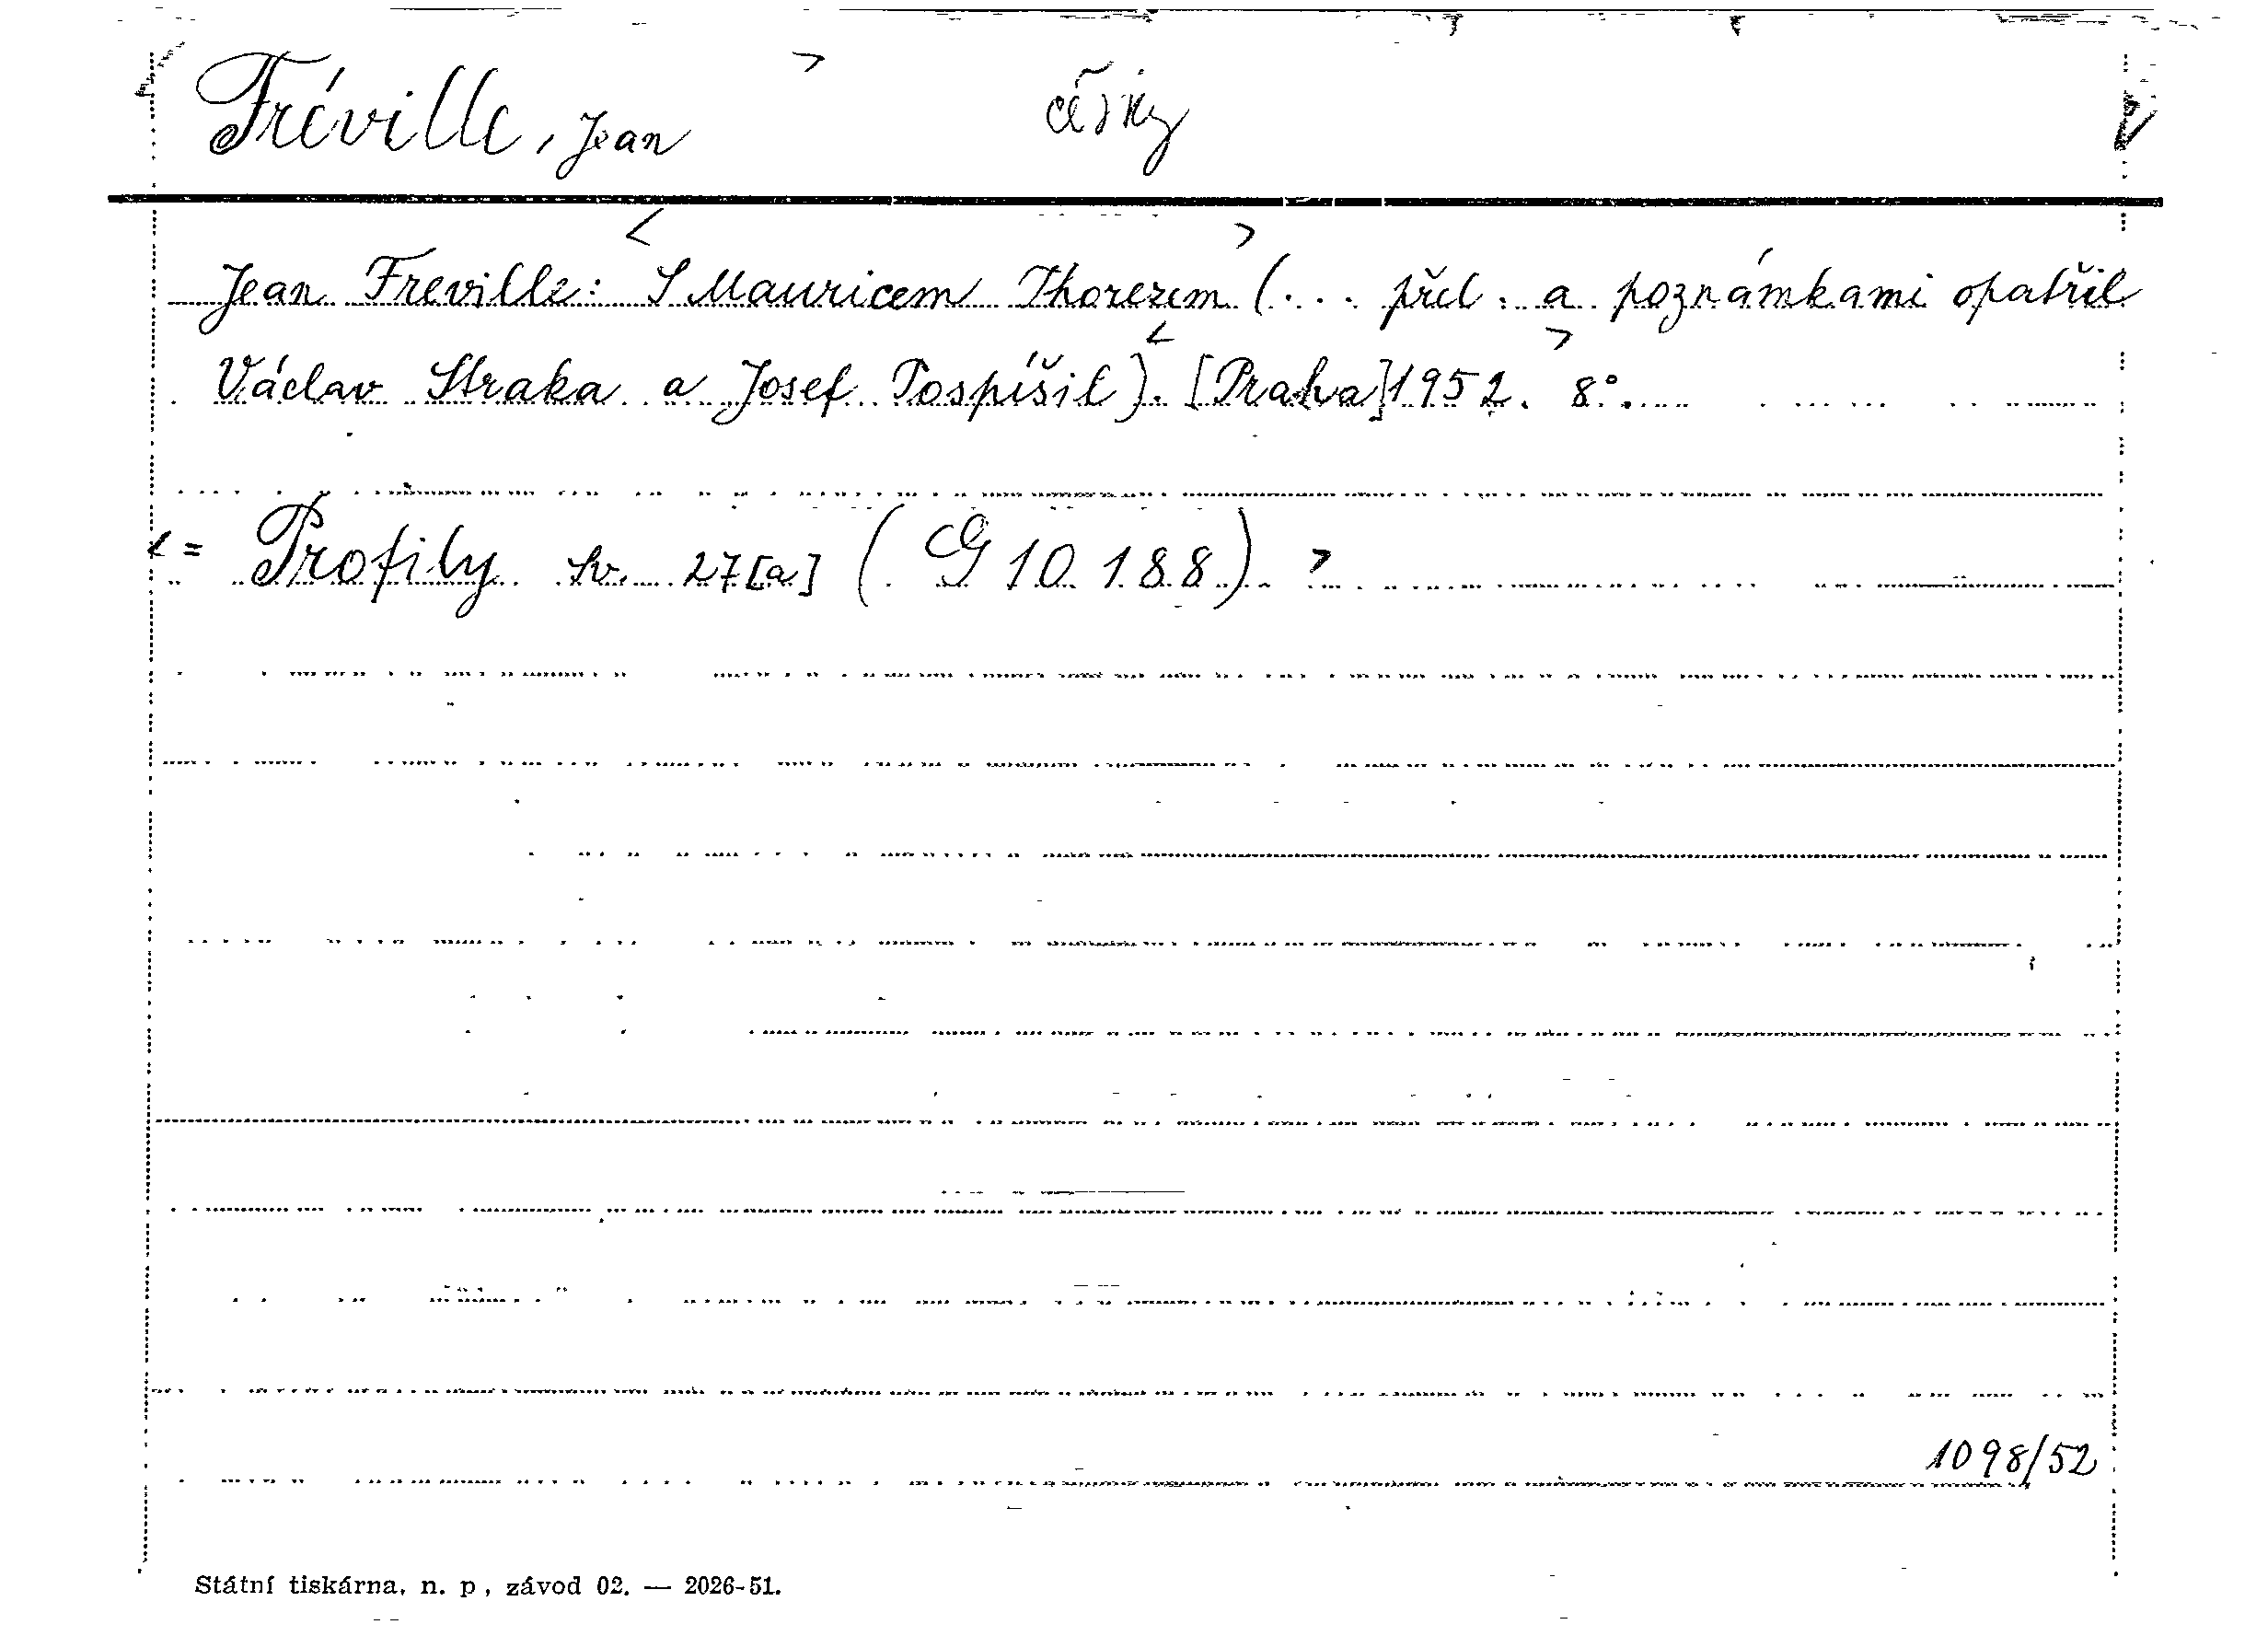 Fréville, Jean > česky V
< >
Jean Freville: S Mauricem Thorezem (... přel. a poznámkami opatřil
< >
Václav Straka a Josef Pospíšil). [Praha] 1952. 8°.
<= Profily sv. 27[a] (G 10.188). >
1098/52
Státní tiskárna, n. p., závod 02. — 2026-51.